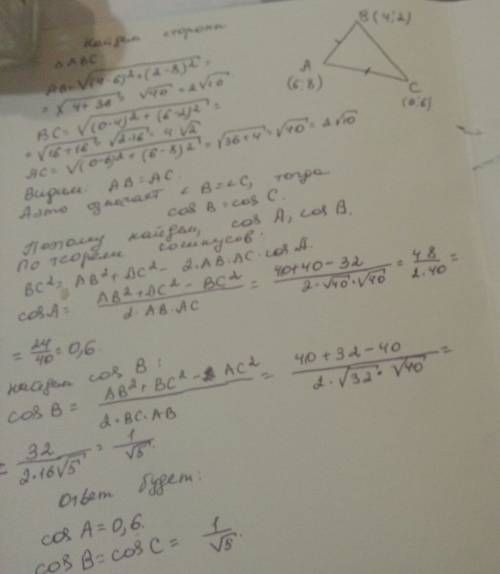 Найдем стороны
△ABC.
AB=√((4-6)²+(2-8)²)=
=√(4+36)=√40=2√10
BC=√((0-4)²+(6-2)²)=
=√(16+16)=√(2·16)=4√2
AC=√((0-6)²+(6-8)²)=√(36+4)=√40=2√10
Видим: AB=AC.
А это означает ∠B=∠C, тогда
cos B=cos C.
Поэтому найдем, cos A, cos B.
По теореме косинусов:
BC²=AB²+AC²-2·AB·AC·cos A.
cos A= (AB²+AC²-BC²)/(2·AB·AC) = (40+40-32)/(2·√40·√40) = 48/(2·40) =
= 24/40 = 0,6.
найдем cos B:
cos B= (AB²+BC²-AC²)/(2·BC·AB) = (40+32-40)/(2·√32·√40) =
= 32/(2·16√5) = 1/√5.
Ответ будет:
cos A=0,6.
cos B=cos C= 1/√5.
B(4;2)
A
(6;8)
C
(0;6)